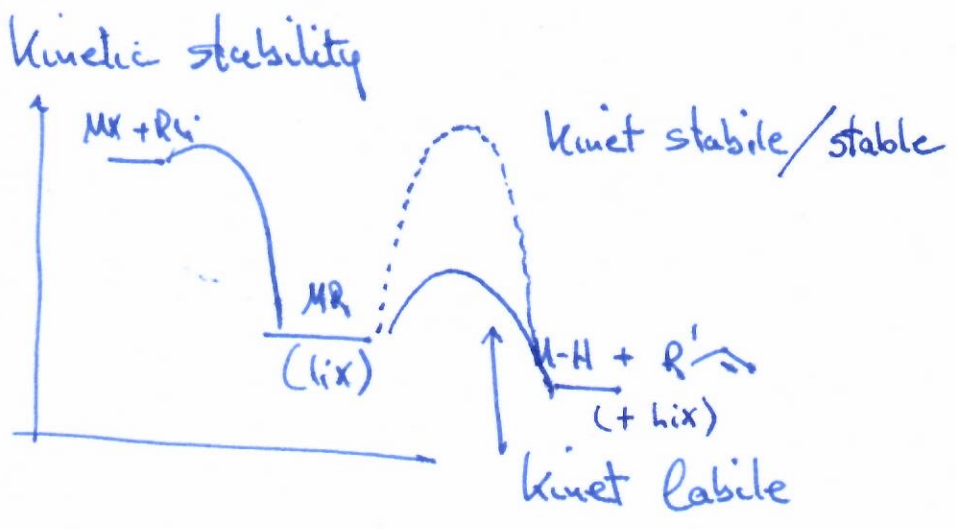 Kinetic stability
MX + RLi
Kinet stabile/stable
MR
(LiX)
M-H + R'
(+ LiX)
Kinet labile